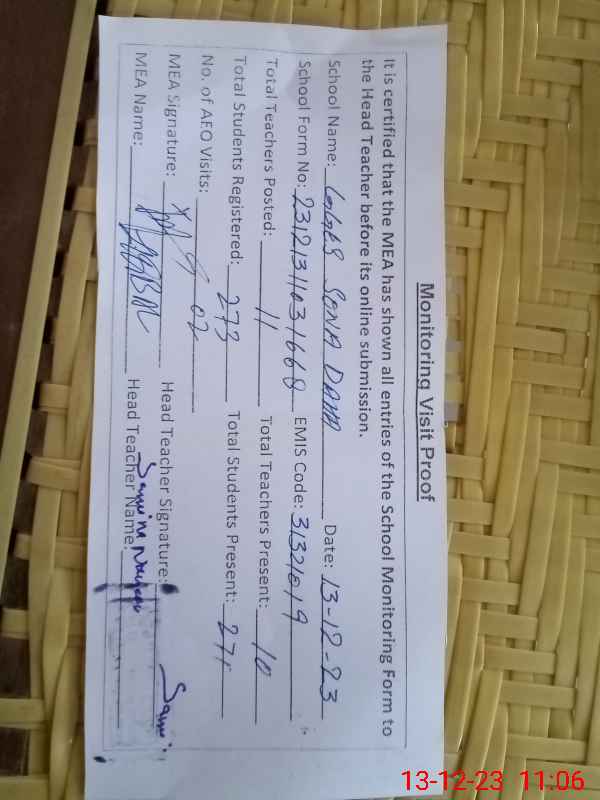 Monitoring Visit Proof
It is certified that the MEA has shown all entries of the School Monitoring Form to
the Head Teacher before its online submission.
School Name: GGES SONA DAMA Date: 13-12-23
School Form No: 2312131031668 EMIS Code: 31321019
Total Teachers Posted: 11 Total Teachers Present: 10
Total Students Registered: 273 Total Students Present: 271
No. of AEO Visits: 02
MEA Signature: Head Teacher Signature:
MEA Name: Head Teacher Name:
13-12-23 11:06